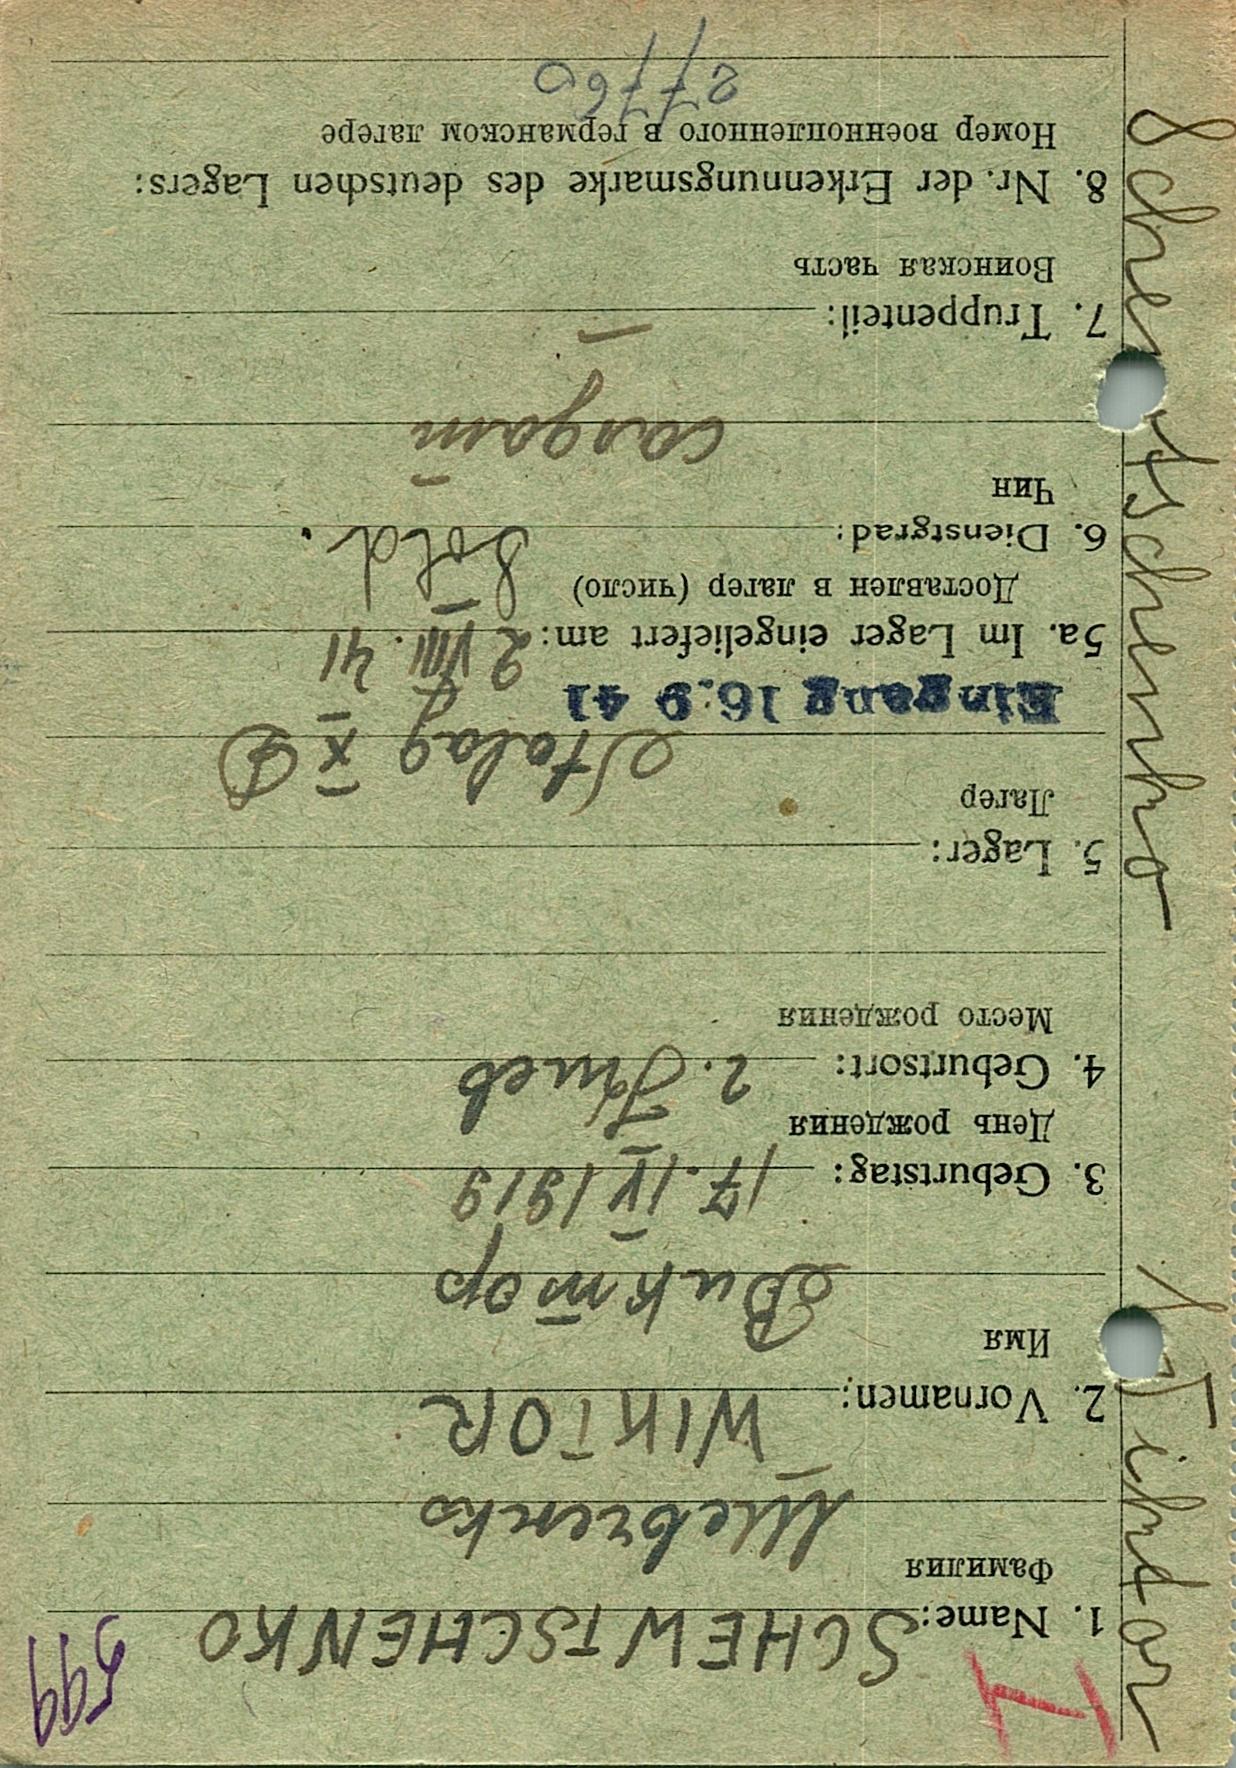 599
1. Name: SCHEWTSCHENKO
Фамилия
Шевченко
2. Vornamen: WIKTOR
Имя
Виктор
3. Geburtstag: 17. IV 1919
День рождения
4. Geburtsort: г. Киев
Место рождения
5. Lager:
Лагер
Stalag X D
Eingang 16.9 41
5a. Im Lager eingeliefert am: 2 VIII. 41
Доставлен в лагер (число)
6. Dienstgrad: Sold.
Чин
солдат
7. Truppenteil: —
Воинская часть
8. Nr. der Erkennungsmarke des deutschen Lagers:
Номер военнопленного в германском лагере
Schewtschenko Wiktor